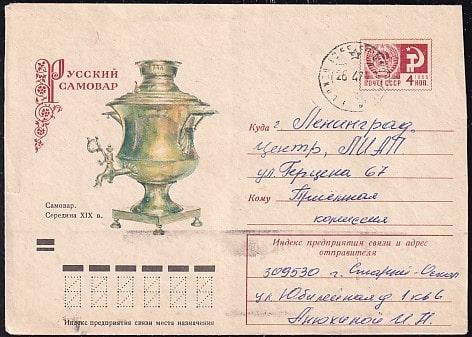 РУССКИЙ
САМОВАР
ПОЧТА СССР
4
КОП.
26
Куда г. Ленинград.
Центр, ЛИАП
ул. Герцена 67
Кому Приемная
комиссия
Самовар.
Середина XIX в.
Индекс предприятия связи и адрес
отправителя
309530 г. Старый-Оскол
ул. Юбилейная д 1 кв 6
Анюхиной И. Н.
Индекс предприятия связи места назначения